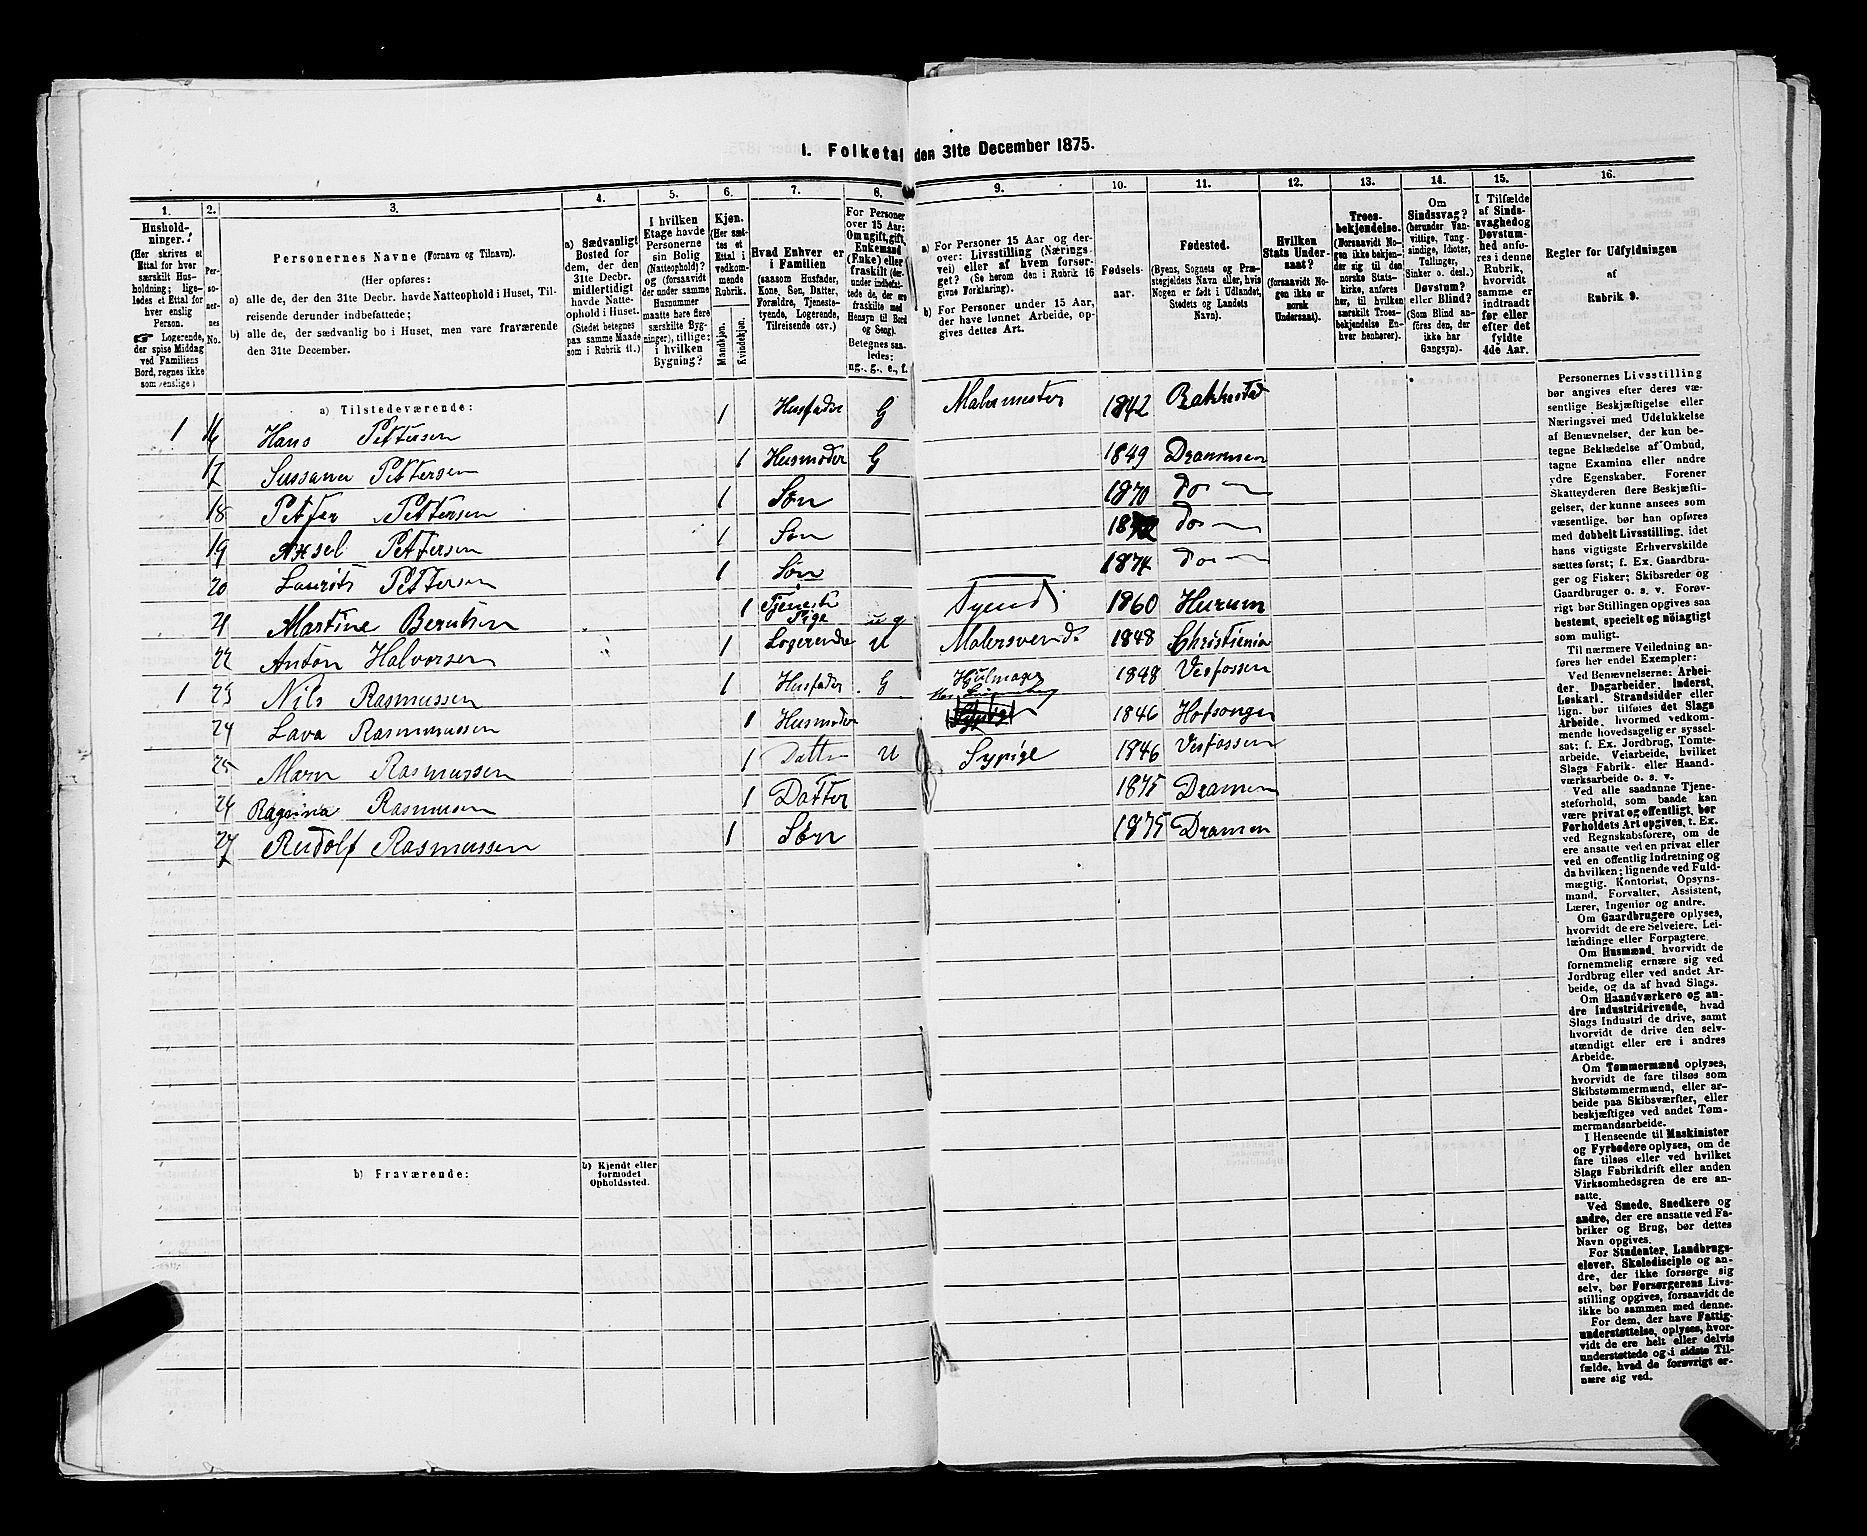 I. Folketal den 31te December 1875.
1. 2. 3. 4. 5. 6. 7. 8. 9. 10. 11. 12. 13. 14. 15. 16.
Hushold-
ninger.
(Her skrives et
Ettal for hver
særskilt Hus-
holdning; lige-
ledes et Ettal for
hver enslig
Person.
☞ Logerende,
der spise Middag
ved Familiens
Bord, regnes ikke
som enslige)
Per-
so-
ner-
nes
No.
Personernes Navne (Fornavn og Tilnavn).
(Her opføres:
a) alle de, der den 31te Decbr. havde Natteophold i Huset, Til-
reisende derunder indbefattede;
b) alle de, der sædvanlig bo i Huset, men vare fraværende
den 31te December.
a) Sædvanligt
Bosted for
dem, der den
31te Decbr.
midlertidigt
havde Natte-
ophold i Huset.
(Stedet betegnes
paa samme Maade
som i Rubrik 11.)
I hvilken
Etage havde
Personerne
sin Bolig
(Natteophold)?
og (forsaavidt
der under samme
Husnummer
maatte høre flere
særskilte Byg-
ninger), tillige:
i hvilken
Bygning?
Kjøn.
(Her sæt-
tes et
Ettal i
vedkom-
mende
Rubrik.
Mandkjøn.
Kvindekjøn.
Hvad Enhver er
i Familien
(saasom Husfader,
Kone, Søn, Datter,
Forældre, Tjeneste-
tyende, Logerende,
Tilreisende osv.)
For Personer
over 15 Aar:
Om ugift, gift,
Enkemand
(Enke) eller
fraskilt (der-
under indbefat-
tede de, der ere
fraskilte med
Hensyn til Bord
og Seng).
Betegnes saa-
ledes:
ug., g., e., f.
a) For Personer 15 Aar og der-
over: Livsstilling (Nærings-
vei) eller af hvem forsør-
get? (Se herom den i Rubrik 16
givne Forklaring).
b) For Personer under 15 Aar,
der have lønnet Arbeide, op-
gives dettes Art.
Fødsels-
aar.
Fødested.
(Byens, Sognets og Præ-
stegjeldets Navn eller, hvis
Nogen er født i Udlandet,
Stedets og Landets
Navn).
Hvilken
Stats Under-
saat?
(forsaavidt No-
gen ikke er
norsk
Undersaat).
Troes-
bekjendelse.
(Forsaavidt No-
gen ikke bekjen-
der sig til den
norske Stats-
kirke, anføres
her, til hvilken
særskilt Troes-
bekjendelse En-
hver henhører).
Om
Sindssvag?
(herunder Van-
vittige, Tung-
sindige, Idioter,
Tullinger,
Sinker o. desl.)
Døvstum?
eller Blind?
(Som Blind an-
føres den, der
ikke har
Gangsyn).
I Tilfælde
af Sinds-
svaghed og
Døvstum-
hed anfø-
res i denne
Rubrik,
hvorvidt
samme er
indtraadt
før eller
efter det
fyldte
4de Aar.
Regler for Udfyldningen
af
Rubrik 9.
a) Tilstedeværende:
1 16 Hans Pettersen 1 Husfader G Malermester 1842 Bakkestad
17 Sussana Pettersen 1 Husmoder G 1849 Drammen
18 Petter Pettersen 1 Søn 1870 Do
19 Axsel Pettersen 1 Søn Do
20 Laurits Pettersen 1 Søn 1874 Do
21 Martine Berntsen 1 Tjeneste
Pige ug Tyende 1860 Hurum
22 Anton Halvorsen 1 Logerende U Malersvend 1848 Christiania
1 23 Nils Rasmussen 1 Husfader G Hjulmager 1848 Vesfossen
24 Lava Rasmussen 1 Husmoder 1846
25 Maren Rasmussen 1 Datter U Sypige 1846 Vesfossen
26 Ragnina Rasmusen 1 Datter 1875 Dramen
27 Rudolf Rasmussen 1 Søn 1875 Dramen
b) Fraværende:
b) Kjendt eller
formodet
Opholdssted.
Personernes Livsstilling
bør angives efter deres væ-
sentlige Beskjæftigelse eller
Næringsvei med Udelukkelse
af Benævnelser, der kun be-
tegne Beklædelse af Ombud,
tagne Examina eller andre
ydre Egenskaber. Forener
Skatteyderen flere Beskjæfti-
gelser, der kunne ansees som
væsentlige, bør han opføres
med dobbelt Livsstilling, idet
hans vigtigste Erhvervskilde
sættes først; f. Ex. Gaardbru-
ger og Fisker; Skibsreder og
Gaardbruger o. s. v. Forøv-
rigt bør Stillingen opgives saa
bestemt, specielt og nøiagtigt
som muligt.
Til nærmere Veiledning an-
føres her endel Exempler:
Ved Benævnelserne: Arbei-
der, Dagarbeider, Inderst,
Løskarl, Strandsidder eller
lign. bør tilføies det Slags
Arbeide, hvormed vedkom-
mende hovedsagelig er syssel-
sat; f. Ex. Jordbrug, Tomte-
arbeide, Veiarbeide, hvilket
Slags Fabrik- eller Haand-
værksarbeide o. s. v.
Ved alle saadanne Tjene-
steforhold, som baade kan
være privat og offentligt, bør
Forholdets Art opgives, t. Ex.
ved Regnskabsførere, om de
ere ansatte ved en privat eller
ved en offentlig Indretning og
da hvilken; lignende ved Fuld-
mægtig, Kontorist, Opsyns-
mand, Forvalter, Assistent,
Lærer, Ingeniør og andre.
Om Gaardbrugere oplyses,
hvorvidt de ere Selveiere, Lei-
lændinge eller Forpagtere.
Om Husmænd, hvorvidt de
fornemmelig ernære sig ved
Jordbrug eller ved andet Ar-
beide, og da af hvad Slags.
Om Haandværkere og an-
dre Industridrivende, hvad
Slags Industri de drive, samt
hvorvidt de drive den selv-
stændigt eller ere i andres
Arbeide.
Om Tømmermænd oplyses,
hvorvidt de fare tilsøs som
Skibstømmermænd, eller ar-
beide paa Skibsværfter, eller
beskjæftiges ved andet Tøm-
mermandsarbeide.
I Henseende til Maskinister
og Fyrbødere oplyses, om de
fare tilsøs eller ved hvilket
Slags Fabrikdrift eller anden
Virksomhedsgren de ere an-
satte.
Ved Smede, Snedkere og
andre, der ere ansatte ved Fa-
briker og Brug, bør dettes
Navn opgives.
For Studenter, Landbrugs-
elever, Skoledisciple og an-
dre, der ikke forsørge sig
selv, bør Forsørgerens Livs-
stilling opgives, forsaavidt de
ikke bo sammen med denne.
For dem, der have Fattig-
understøttelse, oplyses, hvor-
vidt de ere helt eller delvis
understøttede og i sidste Til-
fælde, hvad de forøvrigt er-
nære sig ved.